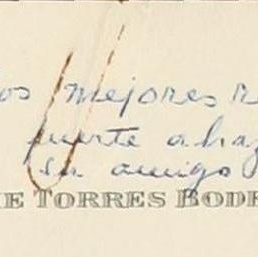 os mejores r
fuerte abraz
su amigo
E TORRES BODE